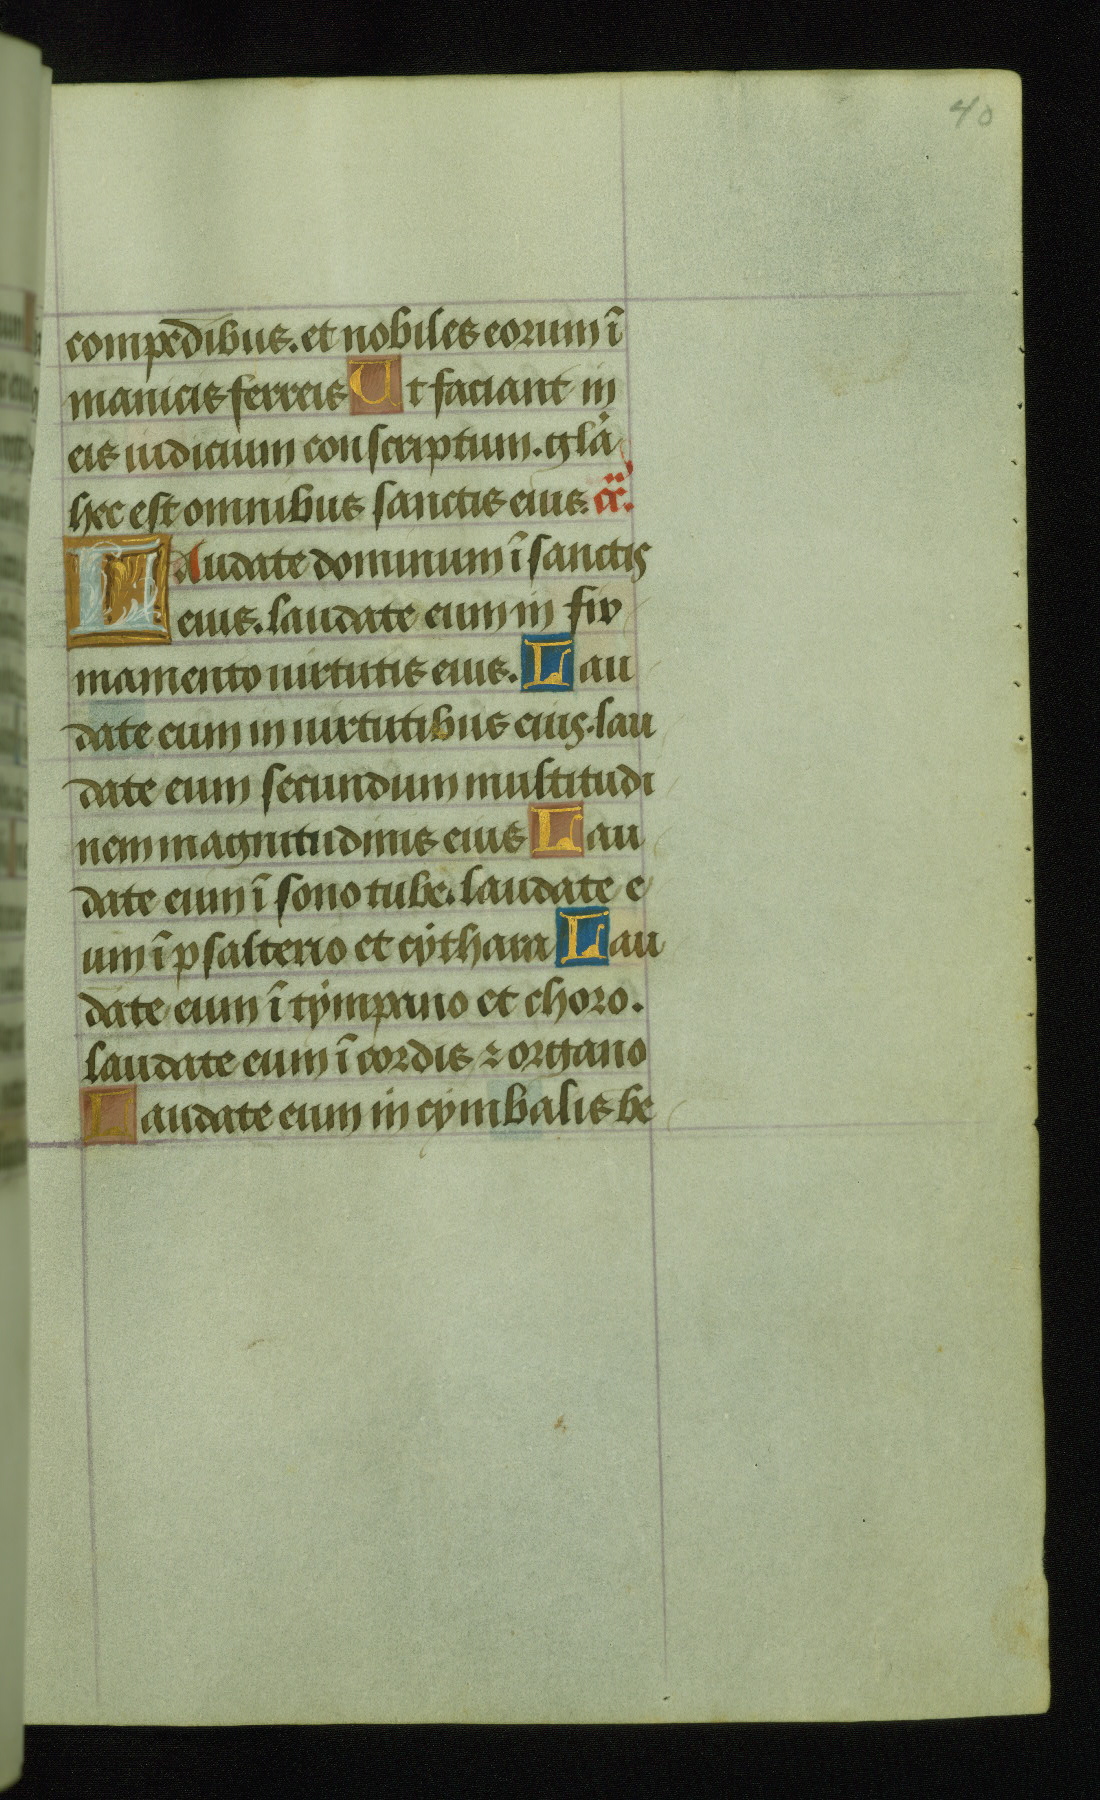 40
compedibus. et nobiles eorum ī
manicis ferreis Ut faciant in
eis iudicium conscriptum. gl̄a
hec est omnibus sanctis eius.
Laudate dominum ī sanctis
eius. laudate eum in fir
mamento uirtutis eius. Lau
date eum in uirtutibus eius. lau
date eum secundum multitudi
nem magnitudinis eius Lau
date eum ī sono tube. laudate e
um ī psalterio et cythara Lau
date eum ī tympano et choro.
laudate eum ī cordis ⁊ organo
Laudate eum in cymbalis be